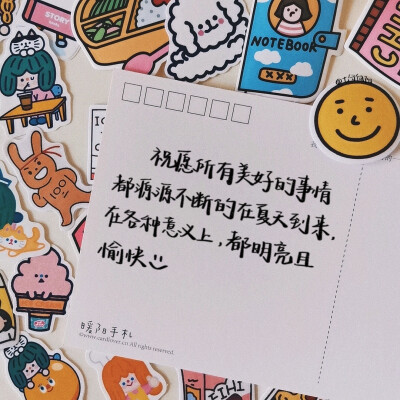 STORY
NOTEBOOK
祝愿所有美好的事情
都源源不断的在夏天到来,
在各种意义上,都明亮且
愉快
暖阳手札
All rights reserved.
ICE CREAM